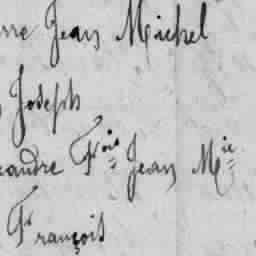 rre Jean Michel
Joseph
eandre Fois Jean Mie
François